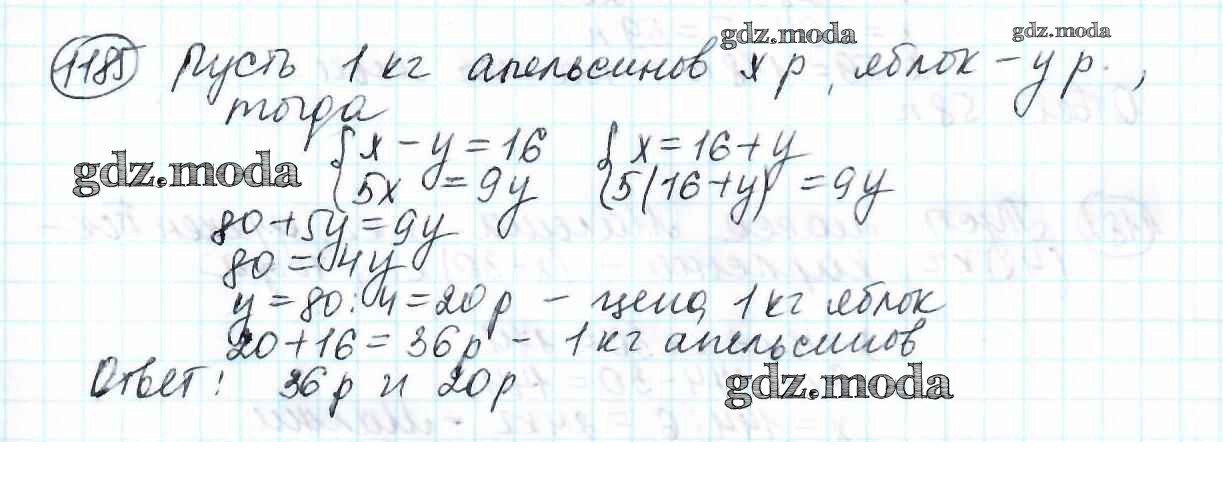 gdz.moda gdz.moda
1185 Пусть 1 кг апельсинов x р, яблок – y р.,
тогда
{ x – y = 16 { x = 16 + y
gdz.moda
{ 5x = 9y { 5(16+y) = 9y
80 + 5y = 9y
80 = 4y
y = 80 : 4 = 20р – цена 1 кг яблок
20 + 16 = 36р – 1 кг апельсинов
Ответ: 36р и 20р
gdz.moda